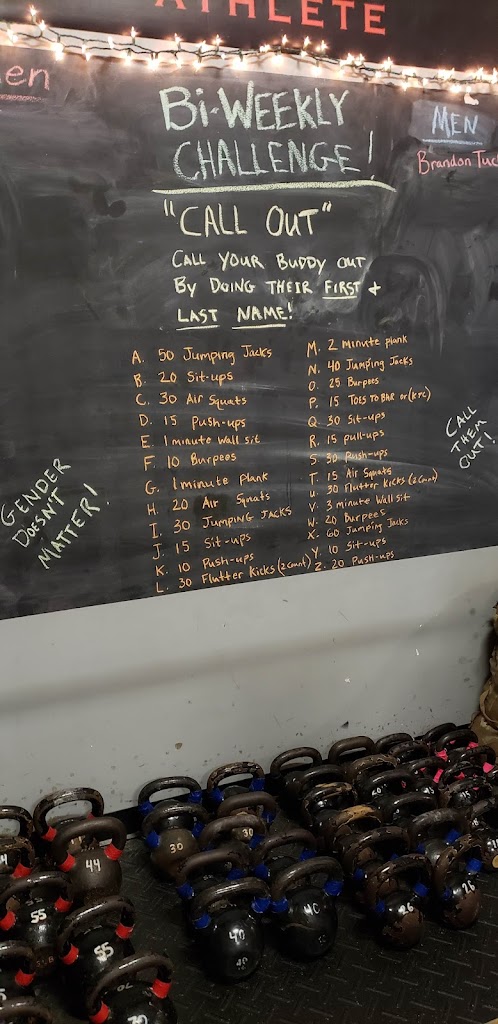 ATHLETE
en
Bi-WEEKLY
CHALLENGE!
MEN
Brandon Tuc
"CALL OUT"
CALL YOUR BUDDY OUT
BY DOING THEIR FIRST +
LAST NAME!
A. 50 Jumping Jacks
B. 20 Sit-ups
C. 30 Air Squats
D. 15 Push-ups
E. 1 minute Wall sit
F. 10 Burpees
G. 1 minute plank
H. 20 Air Squats
I. 30 JUMPING JACKS
J. 15 Sit-ups
K. 10 Push-ups
L. 30 Flutter Kicks (2 count)
M. 2 minute plank
N. 40 Jumping Jacks
O. 25 Burpees
P. 15 TOES TO BAR or (KTC)
Q. 30 Sit-ups
R. 15 pull-ups
S. 30 Push-ups
T. 15 Air Squats
U. 30 Flutter Kicks (2 Count)
V. 3 minute Wall sit
W. 20 Burpees
X. 60 Jumping Jacks
Y. 10 Sit-ups
Z. 20 Push-ups
GENDER
DOESN'T
MATTER!
CALL
THEM
OUT!
44
55
55
30
30
40
40
40
26
26